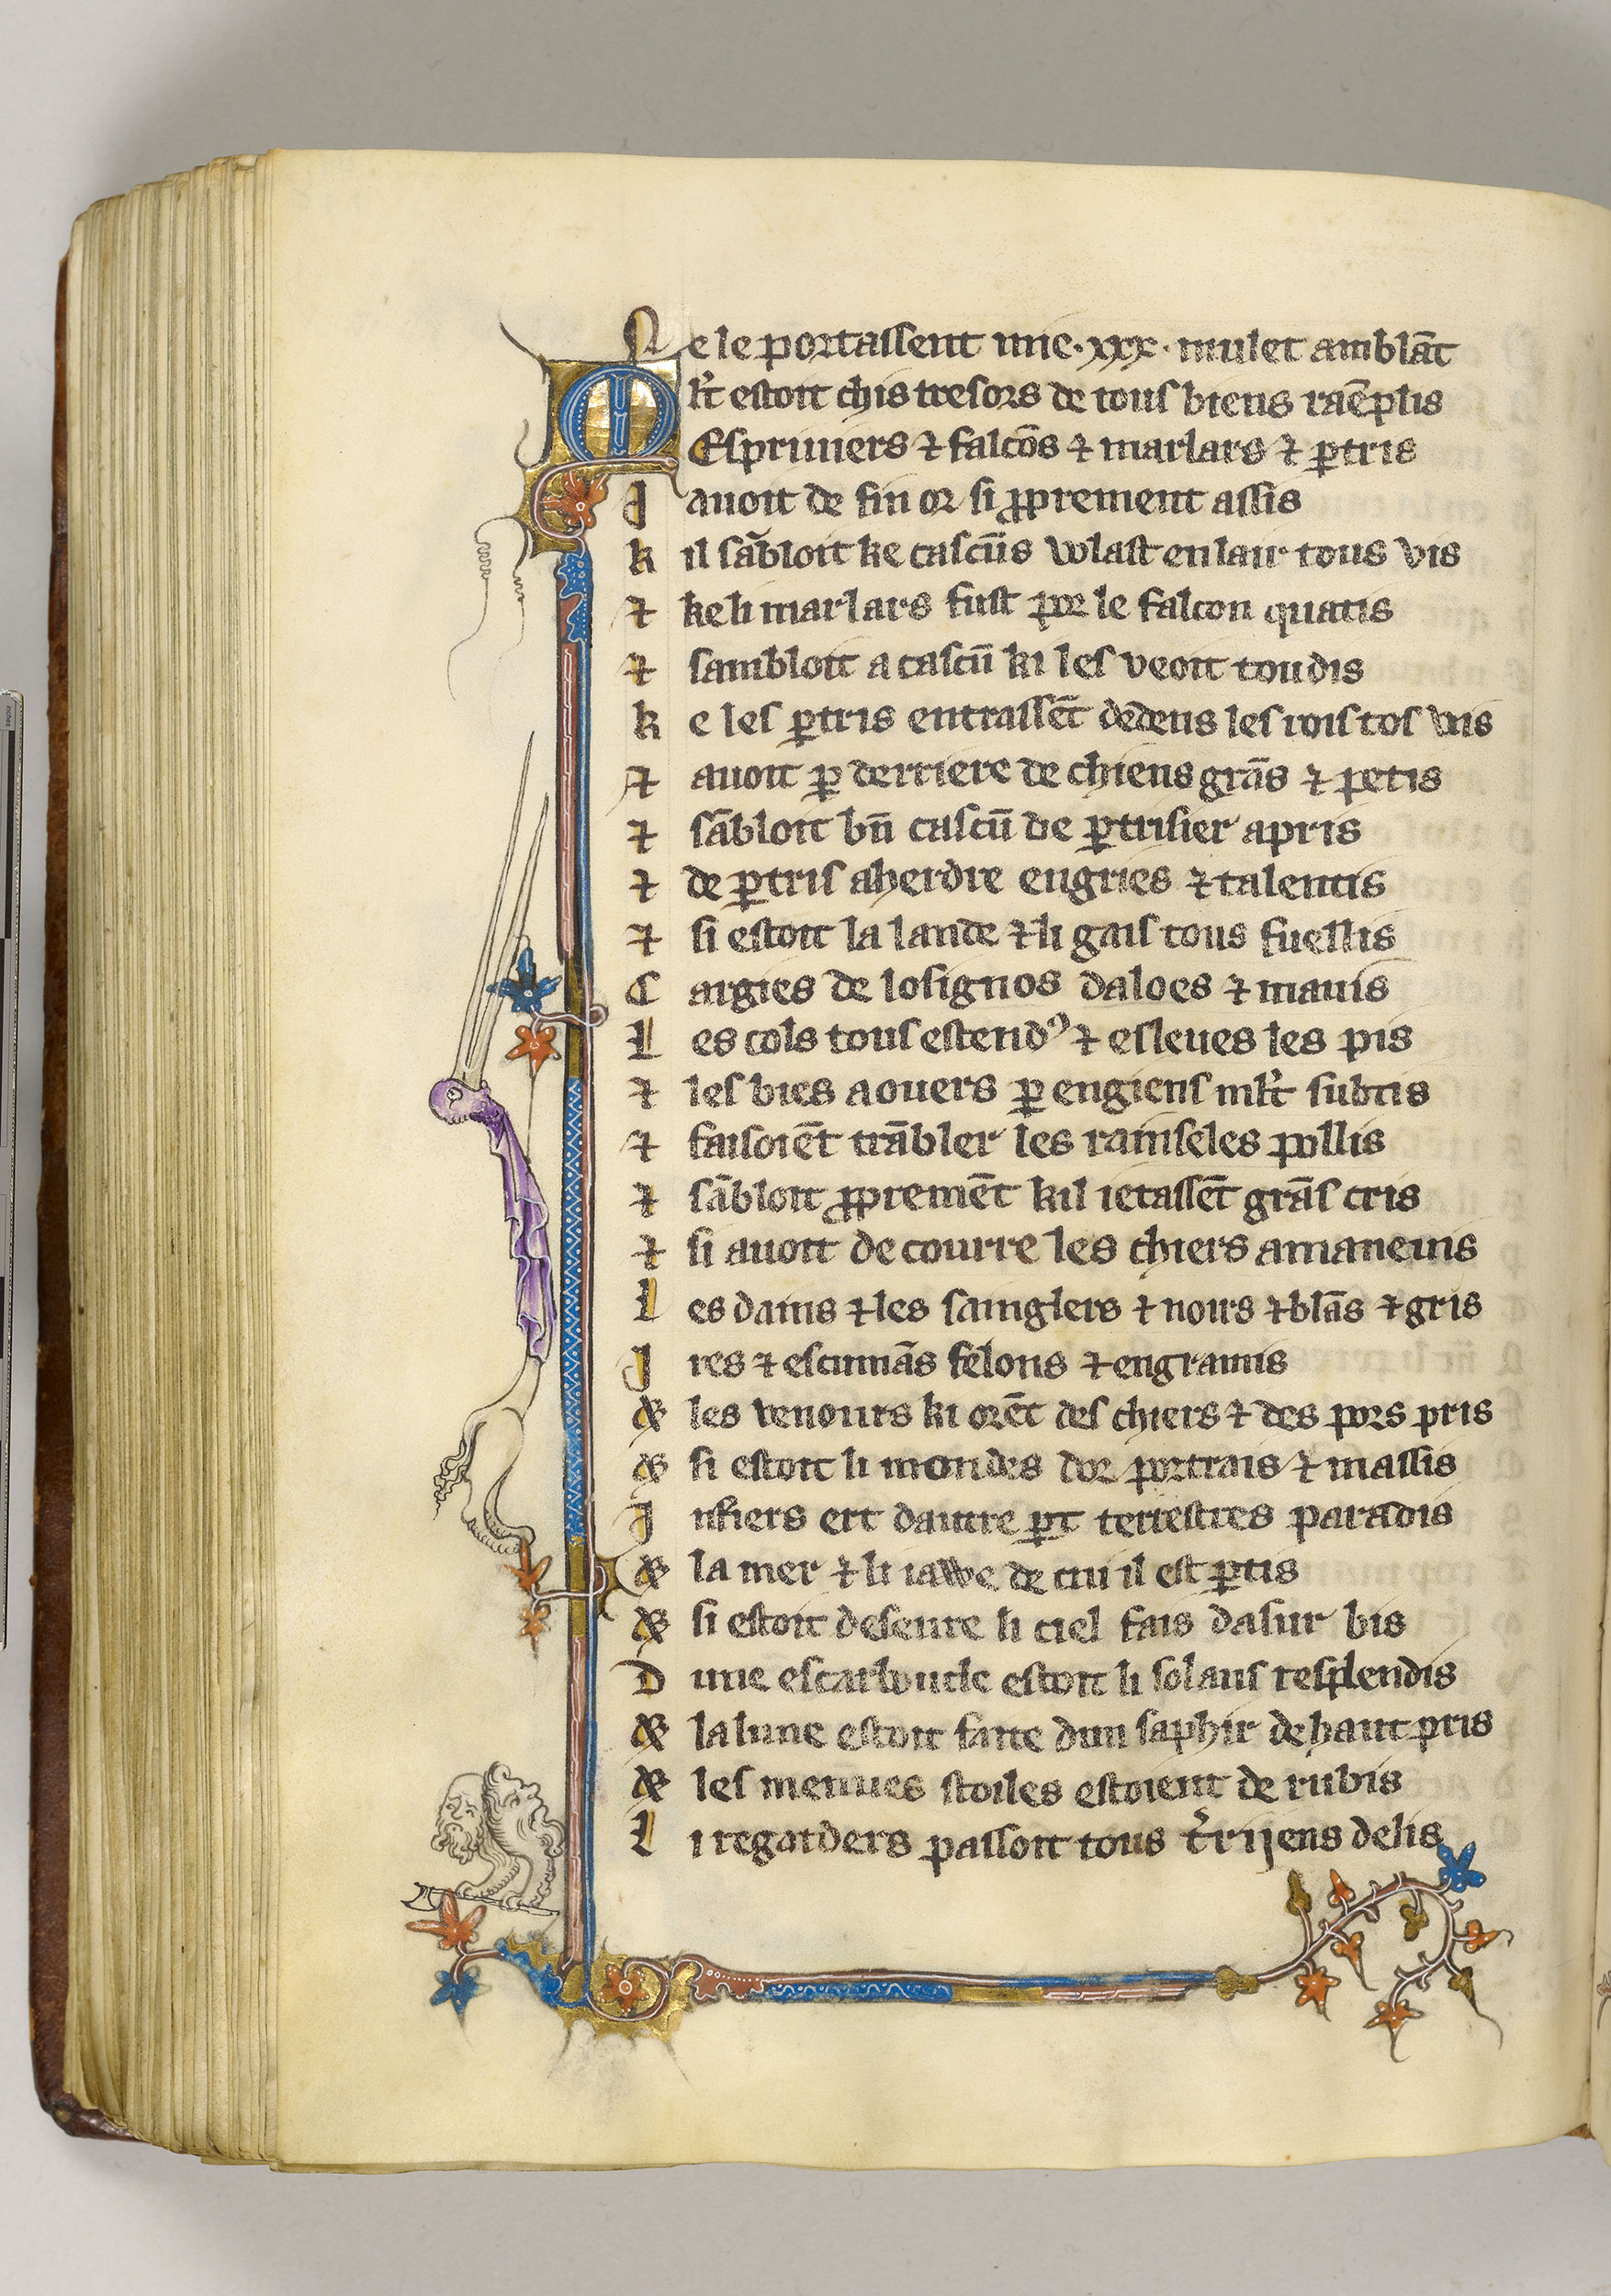 Ne le portassent mie · xxx · mulet amblāt
Ml't estoit chis tresors de tous biens raēplis
Espriuiers ⁊ falcōs ⁊ marlars ⁊ ꝑtris
J auoit de fin or si ꝓprement assis
k il sābloit ke cascūs volast en lair tous vis
⁊ ke li marlars fust por le falcon quatis
⁊ sambloit a cascū ki les veoit toudis
k e les ꝑtris entrassēt dedens les

⁊ auoit ꝑ derriere de chiens grās ⁊ petis
⁊ sābloit bn̄ cascū de ꝑtrisier apris
⁊ de ꝑtris aherdre engries ⁊ talentis
⁊ si estoit la lande ⁊ li gaus tous fuellis
C argies de losignos daloes ⁊ mauis
L es cols tous estendꝰ ⁊ esleues les pis
⁊ les bies aouers ꝑ engiens ml't subtis
⁊ faisoiēt trābler les rainseles pollis
⁊ sābloit ꝓpremēt kil ietassēt grās cris
⁊ si auoit de courre les chiers amaneuis
L es dains ⁊ les sainglers ⁊ noirs ⁊ blās ⁊ gris
J res ⁊ escumās felons ⁊ engramis
& les venours ki orēt des chiers ⁊ des pors pris
& si estoit li mondes dor portrais ⁊ massis
J nfiers ert dautre ꝑt terrestres paradis
& la mer ⁊ li iawe de cui il est ꝑtis
& si estoit deseure li ciel fais dasur bis
D une escarboucle estoit li solaus resplendis
& la lune estoit faite dun saphir de haut pris
& les menues stoiles estoient de rubis
L i regarders passoit tous t'rijens delis